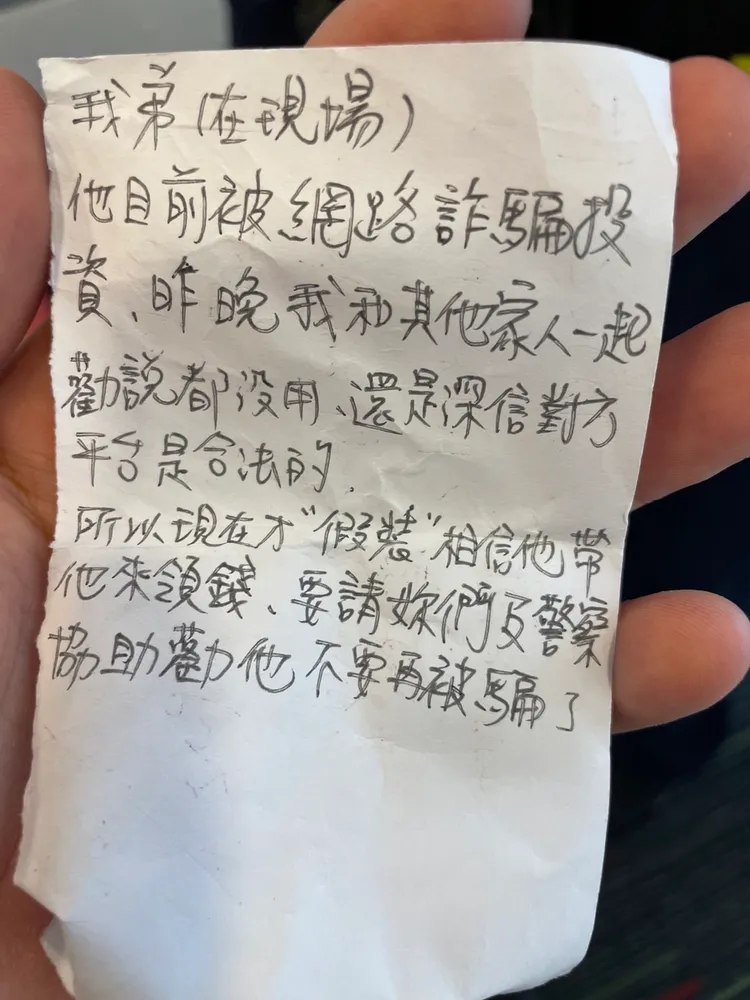 我弟(在現場)
他目前被網路詐騙投
資、昨晚我和其他家人一起
勸說都沒用、還是深信對方
平台是合法的.
所以現在才"假裝"相信他帶
他來領錢、要請妳們及警察
協助勸他不要再被騙了